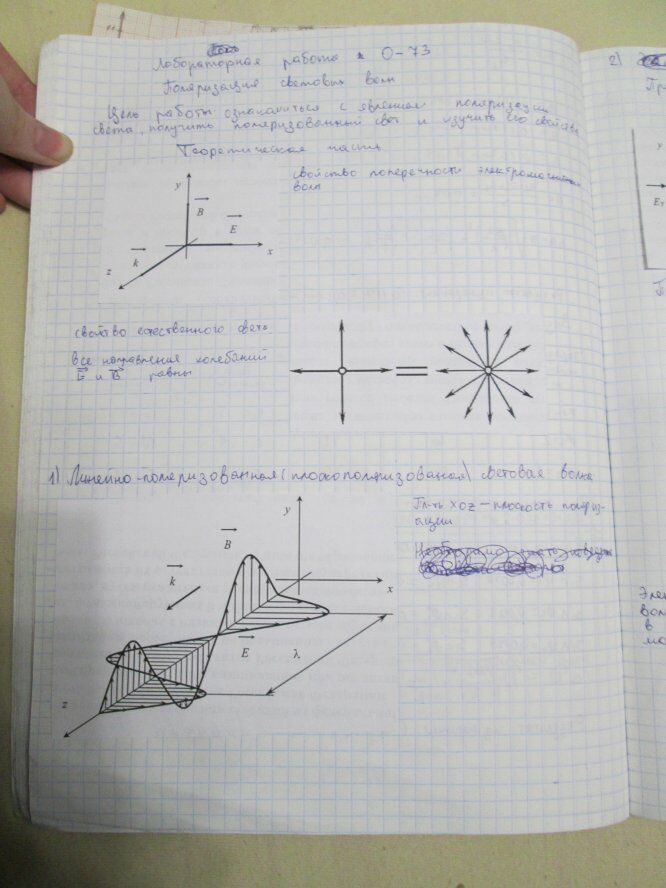 Лабораторная работа О-73
Поляризация световых волн
Цель работы ознакомиться с явлением поляризации
света, получить поляризованный свет и изучить его свойства
Теоретическая часть
свойство поперечности электромагнитных
волн
y
B
E
x
k
z
свойство естественного света
все направления колебаний
E и B равны
1) Линейно-поляризованная (плоскополяризованая) световая волна
Пл-ть XOZ – плоскость поляриз-
ации
y
B
k
x
E
λ
z
2)
y
Элек
вол
в